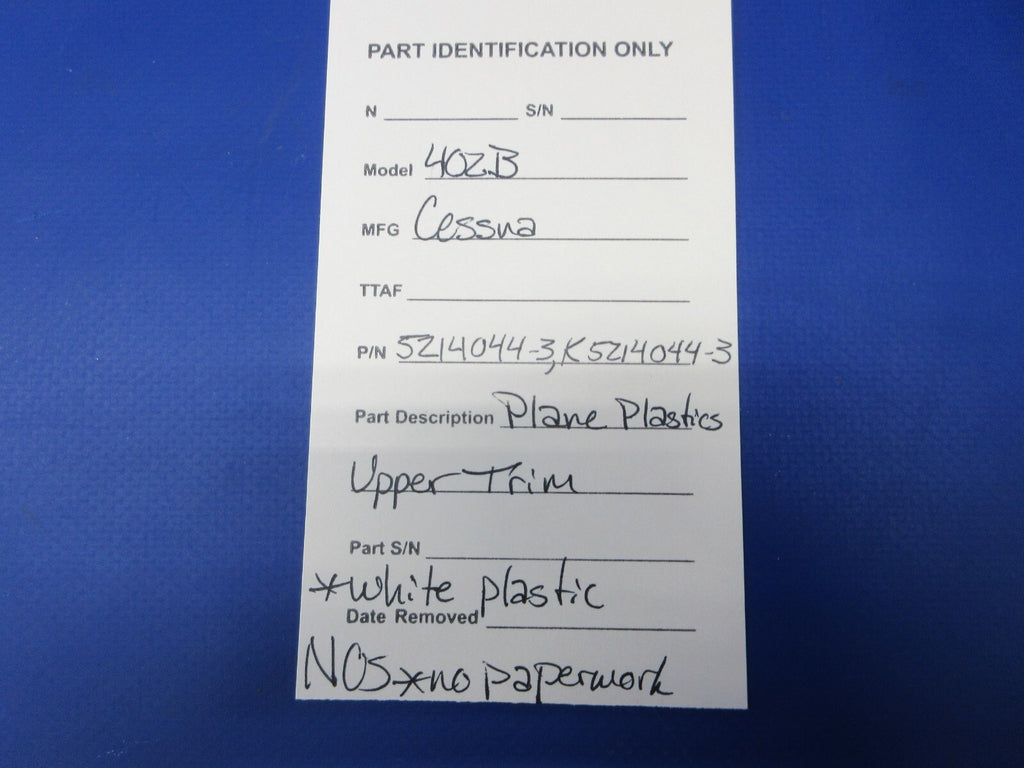 PART IDENTIFICATION ONLY
N S/N
Model 402B
MFG Cessna
TTAF
P/N 5214044-3, K5214044-3
Part Description Plane Plastics
Upper Trim
Part S/N
*white plastic
Date Removed
NOS *no paperwork